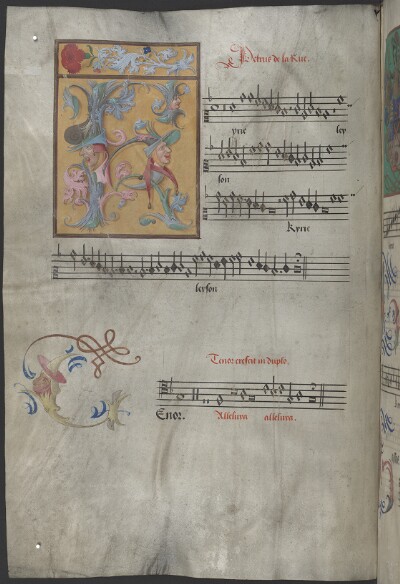 Petrus de la Rue.
K
yrie ley
son
Kyrie
leyson
Tenor crescit in duplo.
Enor. Alleluya alleluya.